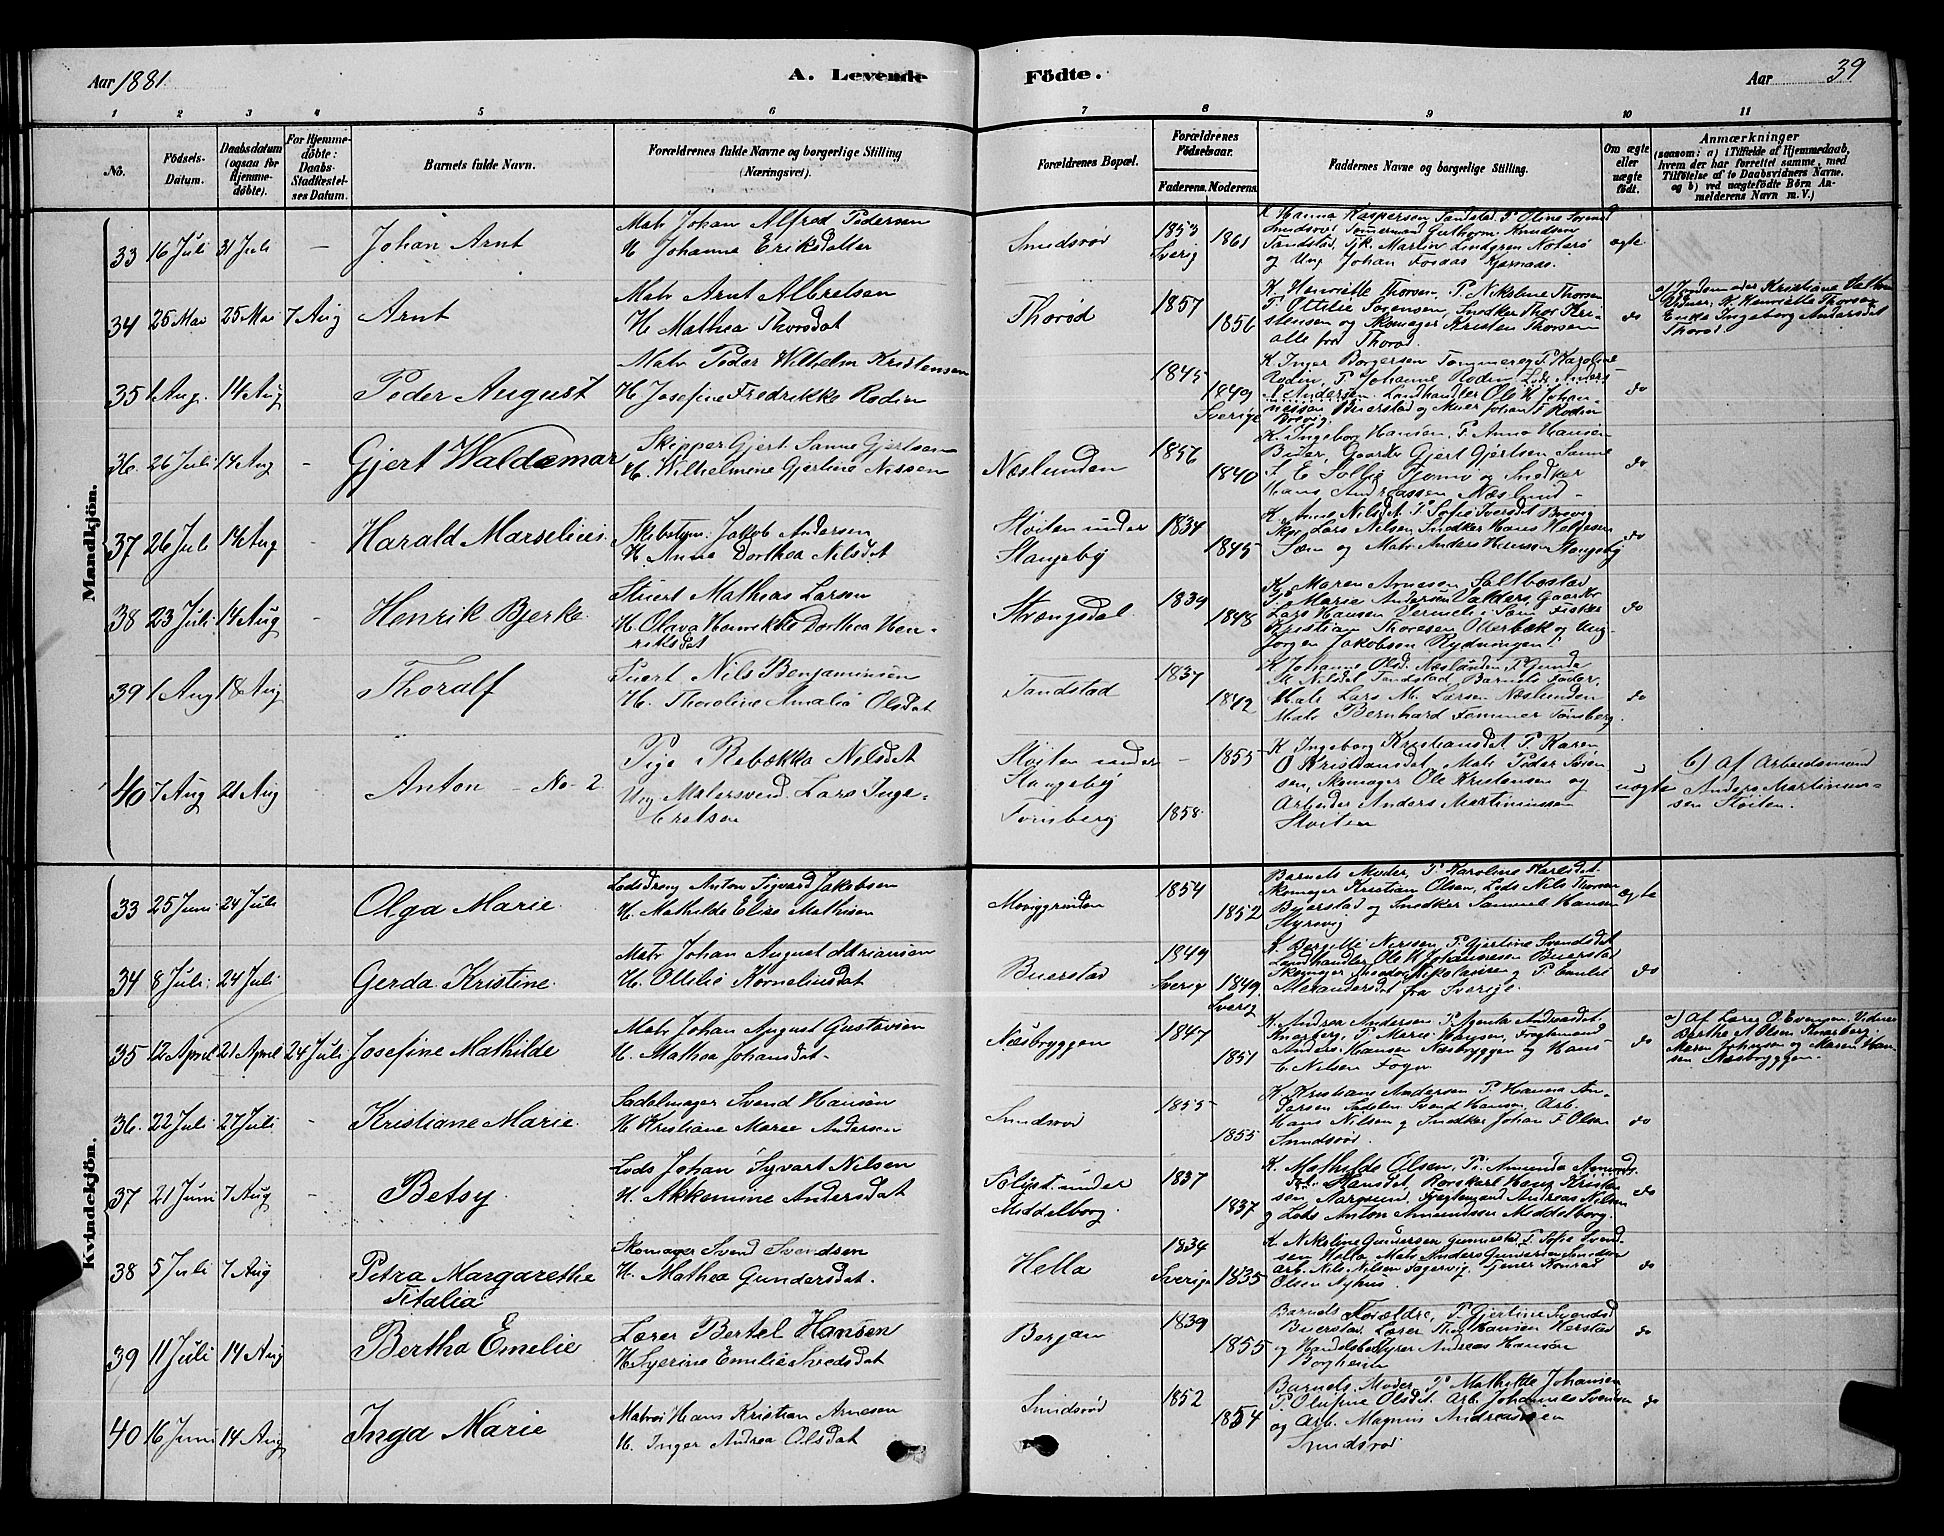 Aar 1881. A. Levende Födte. Aar 39
1 2 3 4 5 6 7 8 9 10 11
No. Födsels-Datum. Daabsdatum (ogsaa for Hjemme-döbte). For Hjemme-döbte: Daabs-Stadfestel-ses Datum. Barnets fulde Navn. Forældrenes fulde Navne og borgerlige Stilling (Næringsvei). Forældrenes Bopæl. Forældrenes Födselsaar. Faderens. Moderens. Faddernes Navne og borgerlige Stilling. Om ægte eller uægte födt. Anmærkninger (saasom: a) i Tilfælde af Hjemmedaab, hvem der har forrettet samme, med Tilföielse af to Daabsvidners Navne, og b) ved uægtefödte Börn An-melderens Navn m. V.)
Mandkjön.
33 16 Juli 31 Juli - Johan Arnt Matr Johan Alfred Pedersen
H Johanna Eriksdatter Smidsrød 1853 Sverig 1861 K Hanna Kaspersen Tandstad P Oline Svend
Smidsrød Tømmermand Guthorm Knudsen
Tandstad, Tjk. Martin Lindgren Noterø
og Ung Johan Fosaas Kjærnaas. ægte
34 25 Mai 25 Mai 7 Aug Arnt Matr Arnt Albretsen
H. Mathea Thorsdat Thorød 1857 1856 K. Henriette Thorsen, P. Nikoline Thorsen
P. Ottilie Sørensen, Snedker Thor Kri-
stensen og Skomager Kristen Thorsen
alle fra Thorød. do a) Jordemoder Kristiane
Vidner, K. Henriette Thorsen
Enke Ingeborg Andersdat
Thorød
35 1 Aug. 14 Aug Peder August Matr Peder Wilhelm Kristensen
H Josefine Fredrikke Rodin 1845 1849 Sverige K Inger Borgersen P Karoline
Rodin, P Johanne Rodin Lods Anders
A Andersen, Landhandler Ole K Johan-
nessen Buerstad og Murer Johan F Rodin
Brevig do
36. 26 Juli 14 Aug - Gjert Waldemar Skipper Gjert Sanne Gjertsen
H. Wilhelmine Gjertine Nissen Næslunden 1856 1840 K. Ingeborg Hansen, P. Anna Hansen
Gaardbr Gjert Gjertsen Sanne
S. E. Sollie Tjømø og Snedker
Hans Andreassen Næslund do
37 26 Juli 14 Aug - Harald Marselius. Skibstym. Jakob Andersen
H. Anna Dorthea Nilsdat Støiten under
Stangeby 1834 1845 K Nilsdat P Sofie Iversdt Brevig
Skpr Lars Nilsen Snedker Hans
Sem og Matr Anders Hansen Stangeby do
38 23 Juli. 14 Aug - Henrik Bjerke. Stuert Mathias Larsen
H. Olava Henrikke Dorthea Hen-
riksdat Strængsdal 1839 1848 K. Maren Arnesen Saltbostad
P Marie Andersen Valders, Gaardbr
Lars Hansen Sem Fisker
Kristian Thoresen Oterbæk og Ung
Jørgen Jakobsen Rydningen do
39 1 Aug 18 Aug Thoralf Stuert Nils Benjaminsen
H. Thoroline Amalie Olsdat Tandstad 1837 1842 K Johanne Olsd. Næslunden, P Gunda
M Nilsdat Tandstad Barnets Fader,
Matr Lars M. Larsen Næslunden
Matr Bernhard Femmer Tønsberg. do
40 7 Aug 21 Aug - Anton - No 2 Pige Rebekka Nilsdat
Ung Malersvend Lars Inge-
bretsen Støiten under
Stangeby
Tønsberg - 1855 1858 K Ingeborg Kristiansdet P. Karen
O Kristiansdat, Matr Peder Søren
sen, Skomager Ole Kristensen og
Arbeider Anders Martiniussen
Støiten uægte b) af Arbeidsmand
Anders Martinius-
sen Støiten.
Kvindekjön.
33 25 Juni 24 Juli Olga Marie. Lodsdreng Anton Sigvard Jakobsen
H. Mathilde Elise Mathisen 1854 1852 Barnets Moder, P. Karoline Karlsdat.
Skomager Kristian Olsen, Lods Nils Thorsen
Buerstad og Snedker Samuel Hansen ægte
34 8 Juli. 24 Juli Gerda Kristine. Matr Johan August Adriansen
H. Ottilie Korneliusdat Buerstad 1849 Sverig 1849. Sverig K. Bergitte Nirssen P. Gjertine Svendsdat
Landhandler Ole K Johannesen Buerstad
Skomager Nikolaisen og P Emilie
Alexandersdat fra Sverige. do
35 12 April 21 April 24 Juli Josefine Mathilde Matr Johan August Gustavsen
H. Mathea Johansdat Næsbryggen 1847 1851 K. Andrea Andersen, P. Agente Andreasdat.
Knarberg, P Marie Hansen, Fragtemand
Anders Hansen Næsbryggen og Hans
E. Nilsen Foyn do a) Af Lærer O Evensen, Vidner
Berthe A Olsen Knarberg.
Maren Johansen og Maren Han-
sen Næsbryggen.
36. 22 Juli 27 Juli - Kristiane Marie. Sadelmager Svend Hansen
H. Kristiane Marie Andersen Smidsrød 1855 1855 K Kristiane Andersen P. Hanna An-
dersen Sadelm. Svend Hansen, Arb.
Hans Nilsen og Snedker Johan F Olsen
Smidsrød. do
37 21 Juni 7 Aug Betsy. Lods Johan Syvart Nilsen
H. Akkemine Andersdat Solyst. under
Middelborg. 1837 1837 K. Mathilde Olsen, Pi. Amunda Amund.
Hansdat, Rorskarl Hans Kristen
sen, Aargaard, Fragtemand Andreas Nilsen
og Lods Anton Amundsen Middelborg. do
38 5 Juli 7 Aug Petra Margarethe
Titalia Skomager Svend Svendsen
H. Mathea Gundersdat. Hella 1834 Sverige 1835 K. Nikoline Gundersen Gunnestad P. Sofie Svend-
sen Hella Matr Anders Gundersen Smidsrød
arb. Nils Nilsen Fagervig, Tjener Konrad
Olsen Nyhus. do
39 11 Juli 14 Aug Bertha Emelie Lærer Bertel Hansen
H Syerine Emilie Svedsdat Borjan 1839 1855 Barnets Forældre, P. Gjertine Svendsd
Buerstad, Lærer Hansen Herstad
og Handelsbestyrer Andreas Hansen
Borgheim do
40 16 Juni 14 Aug Inga Marie Matros Hans Kristian Arnesen
H. Inger Andrea Olsdat Smidsrød 1852 1854 Barnets Moder, P Mathilde Johansen
P. Olufine Olsdat. Arb. Johannes Svendsen
og Arb. Magnus Andreassen
Smidsrød do